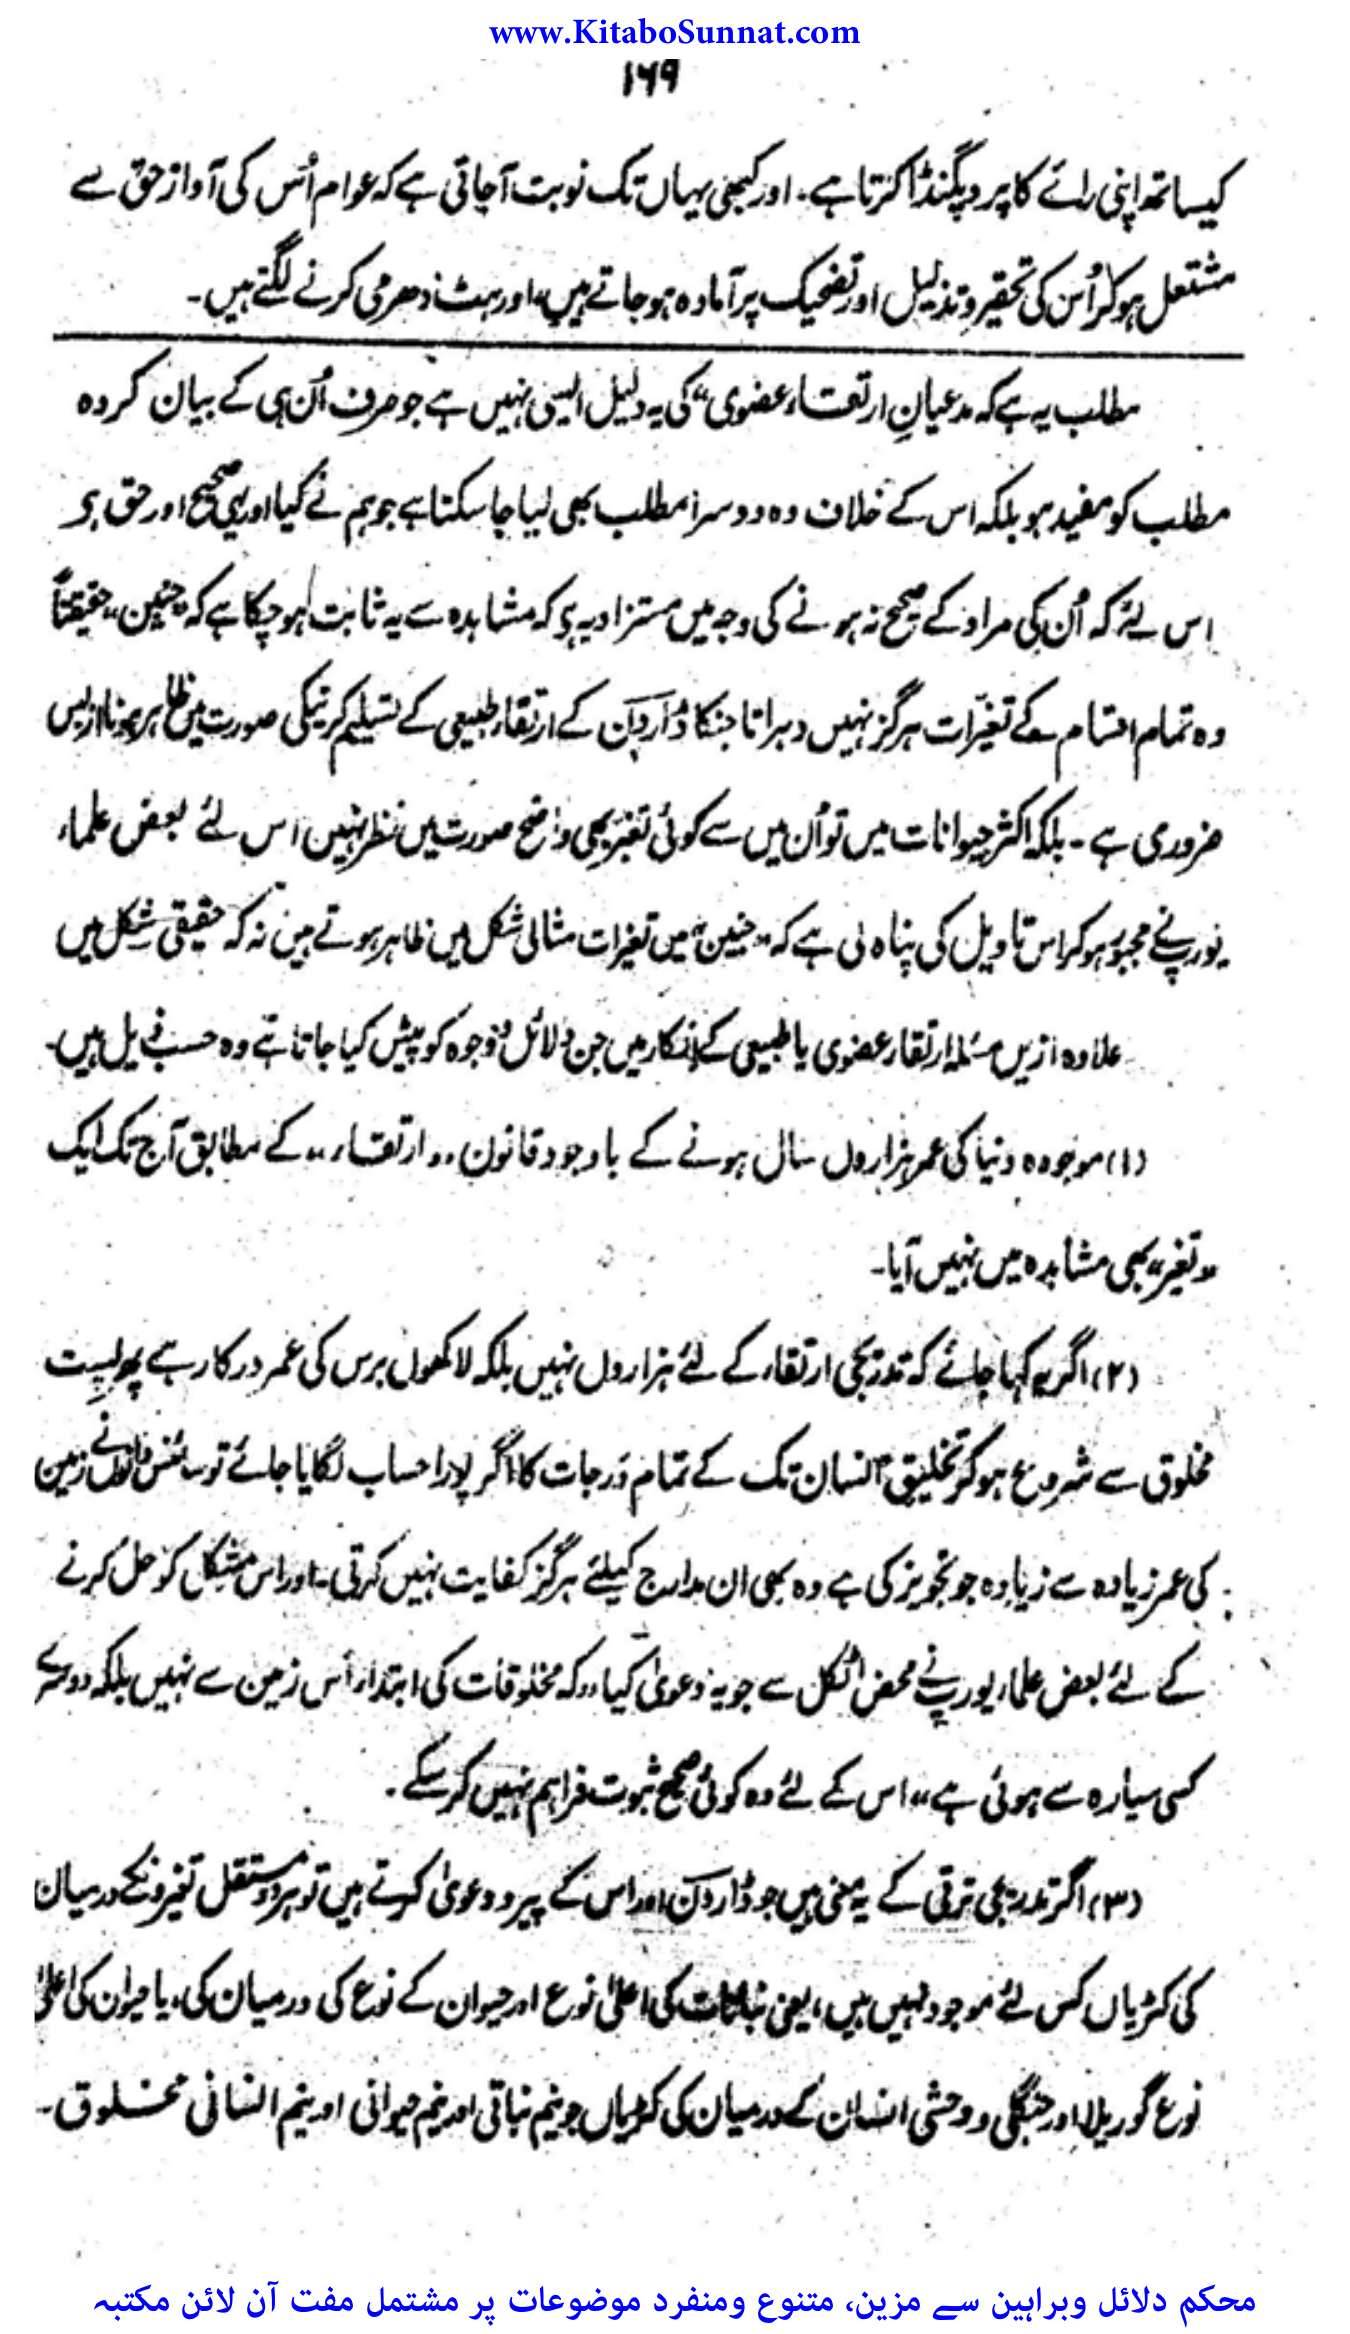 www.KitaboSunnat.com
۱۶۹
کیساتھ اپنی رائے کا پروپگنڈا کرتا ہے۔ اور کبھی یہاں تک نوبت آجاتی ہے کہ عوام اُس کی آواز حق سے
مشتعل ہوکر اُس کی تحقیر و تذلیل اور تضحیک پر آمادہ ہوجاتے ہیں، اور ہٹ دھرمی کرنے لگتے ہیں۔
مطلب یہ ہے کہ مدعیانِ ارتقاء عضوی“ کی یہ دلیل ایسی نہیں ہے جو صرف اُن ہی کے بیان کردہ
مطلب کو مفید ہو بلکہ اس کے خلاف وہ دوسرا مطلب بھی لیا جاسکتا ہے جو ہم نے کیا اور یہی صحیح اور حق ہے
اس لئے کہ اُن کی مراد کے صحیح نہ ہونے کی وجہ میں مستزاد یہ ہے کہ مشاہدہ سے یہ ثابت ہوچکا ہے کہ ”جنین“ حقیقتاً
وہ تمام اقسام کے تغیرات ہرگز نہیں دہراتا جنکا ڈارون کے ارتقاء طبیعی کے تسلیم کرنیکی صورت میں ظاہر ہونا ازبس
ضروری ہے۔ بلکہ اکثر حیوانات میں تو اُن میں سے کوئی تغیر بھی واضح صورت میں نظر نہیں اس لئے بعض علماء
یورپ نے مجبور ہوکر اس تاویل کی پناہ لی ہے کہ ”جنین“ میں تغیرات مثالی شکل میں ظاہر ہوتے ہیں نہ کہ حقیقی شکل میں
علاوہ ازیں مسئلہ ارتقاء عضوی یا طبیعی کے انکار میں جن دلائل و وجوہ کو پیش کیا جاتا ہے وہ حسب ذیل ہیں۔
(۱) موجودہ دنیا کی عمر ہزاروں سال ہونے کے باوجود قانون ”ارتقاء“ کے مطابق آج تک ایک
”تغیر“ بھی مشاہدہ میں نہیں آیا۔
(۲) اگر یہ کہا جائے کہ تدریجی ارتقاء کے لئے ہزاروں نہیں بلکہ لاکھوں برس کی عمر درکار ہے پھر پست
مخلوق سے شروع ہوکر تخلیق انسان تک کے تمام درجات کا اگر پورا حساب لگایا جائے تو سائنس دانوں نے زمین
کی عمر زیادہ سے زیادہ جو تجویز کی ہے وہ بھی ان مدارج کیلئے ہرگز کفایت نہیں کرتی۔ اور اس مشکل کو حل کرنے
کے لئے بعض علماء یورپ نے محض اٹکل سے جو یہ دعویٰ کیا ”کہ مخلوقات کی ابتداء اس زمین سے نہیں بلکہ دوسرے
کسی سیارہ سے ہوئی ہے“ اس کے لئے وہ کوئی صحیح ثبوت فراہم نہیں کرسکے۔
(۳) اگر تدریجی ترقی کے یہ معنی ہیں جو ڈارون اور اس کے پیرو دعویٰ کرتے ہیں تو ہر دو مستقل تغیروں کے درمیان
کی کڑیاں کس لئے موجود نہیں ہیں، یعنی نباتات کی اعلیٰ نوع اور حیوان کے نوع کی درمیان کی، یا حیوان کی اعلیٰ
نوع گوریلا اور جنگلی و وحشی انسان کے درمیان کی کڑیاں جو نیم نباتی اور نیم حیوانی اور نیم انسانی مخلوق۔
محکم دلائل وبراہین سے مزین، متنوع ومنفرد موضوعات پر مشتمل مفت آن لائن مکتبہ